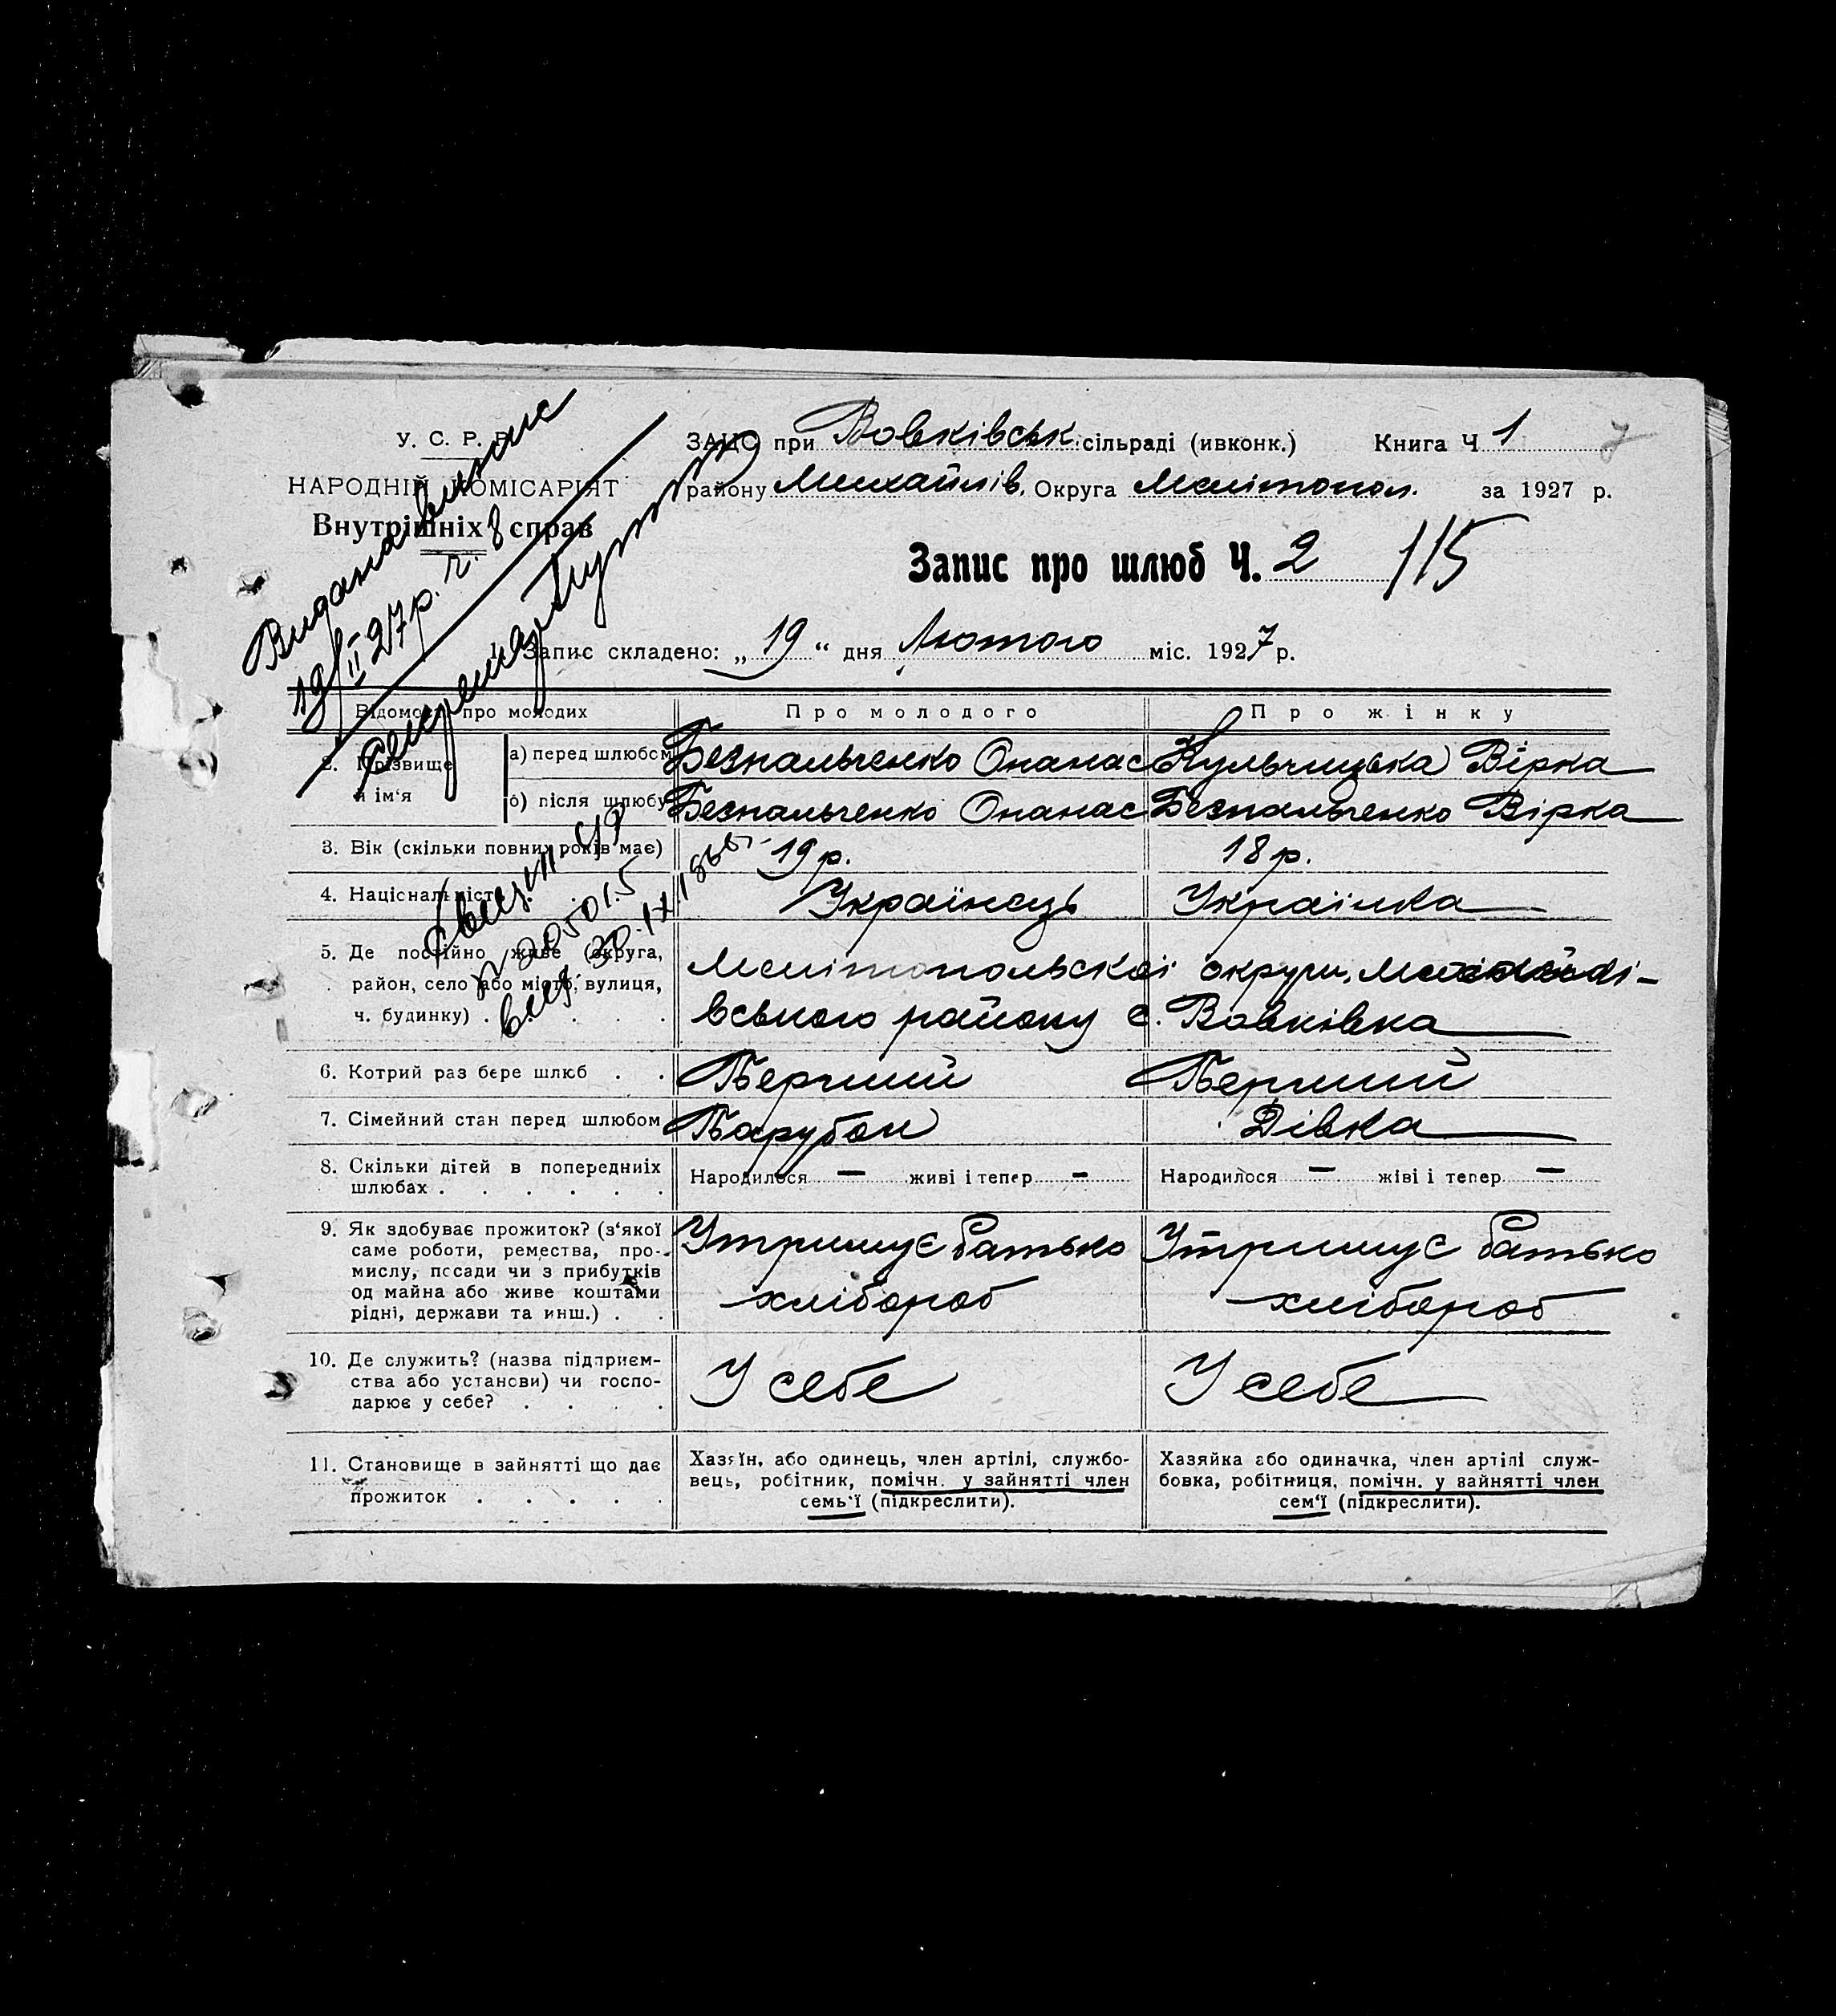 У. С. Р. Р.
НАРОДНІЙ КОМІСАРІЯТ
Внутрішніх справ
ЗАЦС при Вовківськ. сільраді (ивконк.) Книга Ч 1 7
району Михайлів. Округа Мелітопол. за 1927 р.
Запис про шлюб Ч. 2 115
1. Запис складено: „ 19 “ дня Лютого міс. 1927 р.
Видана випис
19/II 27 р. ч. 8
Секретар
Відомості про молодих Про молодого Про жінку
2. Прізвище й ім‘я а) перед шлюбом Безпальченко Опанас Кульчицька Вірка
б) після шлюбу Безпальченко Опанас Безпальченко Вірка
3. Вік (скільки повних років має) 19 р. 18 р.
4. Національність Українець Українка
5. Де постійно живе (округа, район, село або місто, вулиця, ч. будинку) . . . . .
Мелітопольскої округи,
вського району с. Вовківка
6. Котрий раз бере шлюб . . Перший Перший
7. Сімейний стан перед шлюбом Парубок Дівка
8. Скільки дітей в попередниіх шлюбах . . . . . .
Народилося — живі і тепер – Народилося — жіві і тепер —
9. Як здобуває прожиток? (з‘якої
саме роботи, ремества, про-
мислу, посади чи з прибутків
од майна або живе коштами
рідні, держави та инш.) . .
Утримує батько Утримує батько
хлібороб хлібороб
10. Де служить? (назва підприєм-
ства або установи) чи госпо-
дарює у себе? . . . .
У себе У себе
11. Становище в зайнятті що дає
прожиток . . . . .
Хазяїн, або одинець, член артілі, службо-
вець, робітник, помічн. у зайнятті член
семь‘ї (підкреслити).
Хазяйка або одиначка, член артілі служ-
бовка, робітниця, помічн. у зайнятті член
сем‘ї (підкреслити).